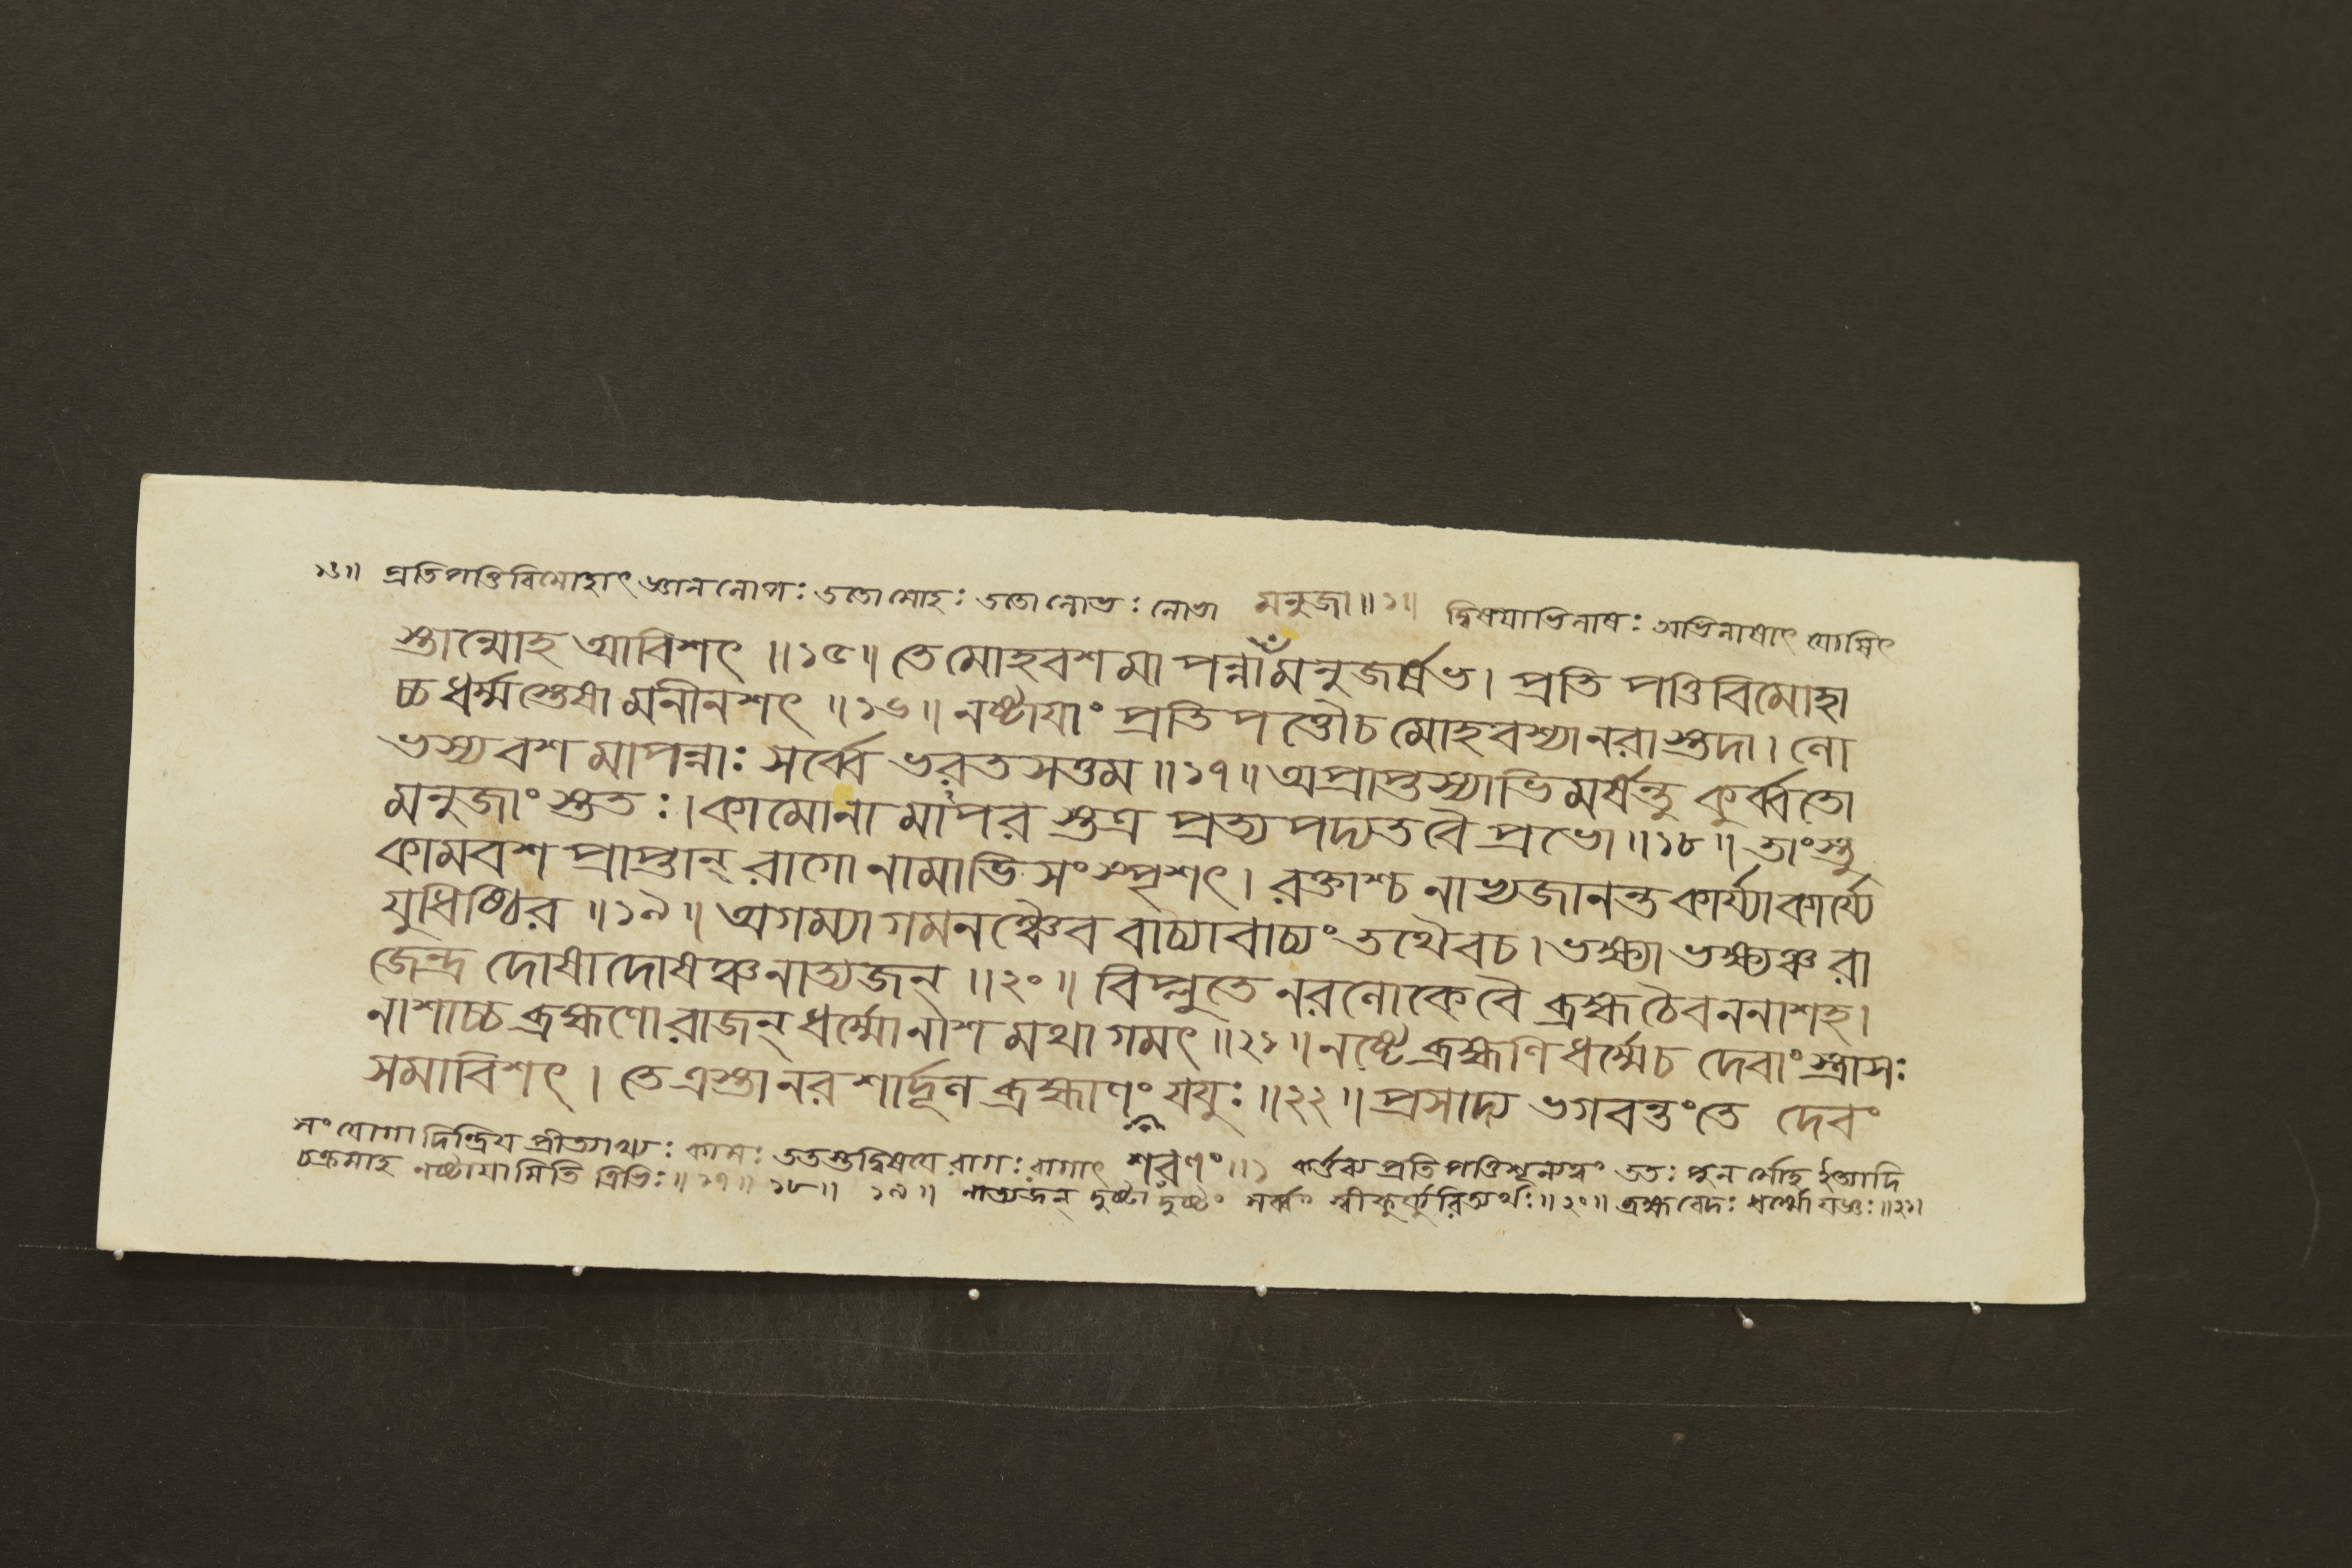 ১৬॥ প্রতিপত্তিবিমোহাৎ জ্ঞানলোপঃ ততো মোহঃ ততো লোভঃ লোভা মনুজা॥১॥ দ্বিষয়াভিলাষঃ অভিলাষাৎ যোষিৎ
স্তান্মোহ আবিশৎ ॥১৫॥ তে মোহবশ মা পন্না মনুজর্ষভ। প্রতি পত্তিবিমোহা
চ্চ ধর্ম্মস্তেষা মনীনশৎ ॥১৬॥ নষ্টায়াং প্রতিপত্তৌচ মোহবশ্যা নরাস্তদা। লো
ভস্য বশ মাপন্নাঃ সর্ব্বে ভরতসত্তম ॥১৭॥ অপ্রাপ্তস্যাভিমর্ষন্তু কুর্ব্বতো
মনুজাংস্ততঃ। কামোনামাপর স্তত্র প্রত্য পদ্যত বৈ প্রভো ॥১৮॥ তাংস্তু
কামবশ প্রাপ্তান্ রাগো নামাভি সংস্পৃশৎ। রক্তাশ্চ নাভ্যজানন্ত কার্য্যাকার্য্যে
যুধিষ্ঠির ॥১৯॥ অগম্যাগমনঞ্চৈব বাচ্যাবাচ্যং তথৈবচ। ভক্ষ্যা ভক্ষ্যঞ্চ রা
জেন্দ্র দোষাদোষঞ্চ নাত্যজন্ ॥২০॥ বিপ্লুতে নরলোকে বৈ ব্রহ্ম চৈবননাশহ।
নাশাচ্চ ব্রহ্মণো রাজন্ ধর্ম্মোনাশ মথা গমৎ ॥২১॥ নষ্টে ব্রহ্মণি ধর্ম্মেচ দেবাংস্ত্রাসঃ
সমাবিশৎ। তে ত্রস্তা নর শার্দ্দূল ব্রহ্মাণং যযুঃ ॥২২॥ প্রসাদ্য ভগবন্তং তে দেবং
সংযোগাদিন্দ্রিয় প্রীত্যাখ্যঃ কামঃ ততস্তদ্বিষয়ে রাগঃ রাগাৎ শরণং ॥১ কর্ত্তব্য প্রতিপত্তিশূন্যত্বং ততঃ পুন র্মোহ ইত্যাদি
চক্রমাহ নষ্টায়ামিতি ত্রিভিঃ॥১৭॥ ১৮॥ ১৯॥ নাত্যজন্ দুষ্টাদুষ্টং সর্ব্বং স্বীকুর্ব্বন্নিত্যর্থঃ॥২০॥ ব্রহ্ম বেদঃ ধর্ম্মো যজ্ঞঃ॥২১॥